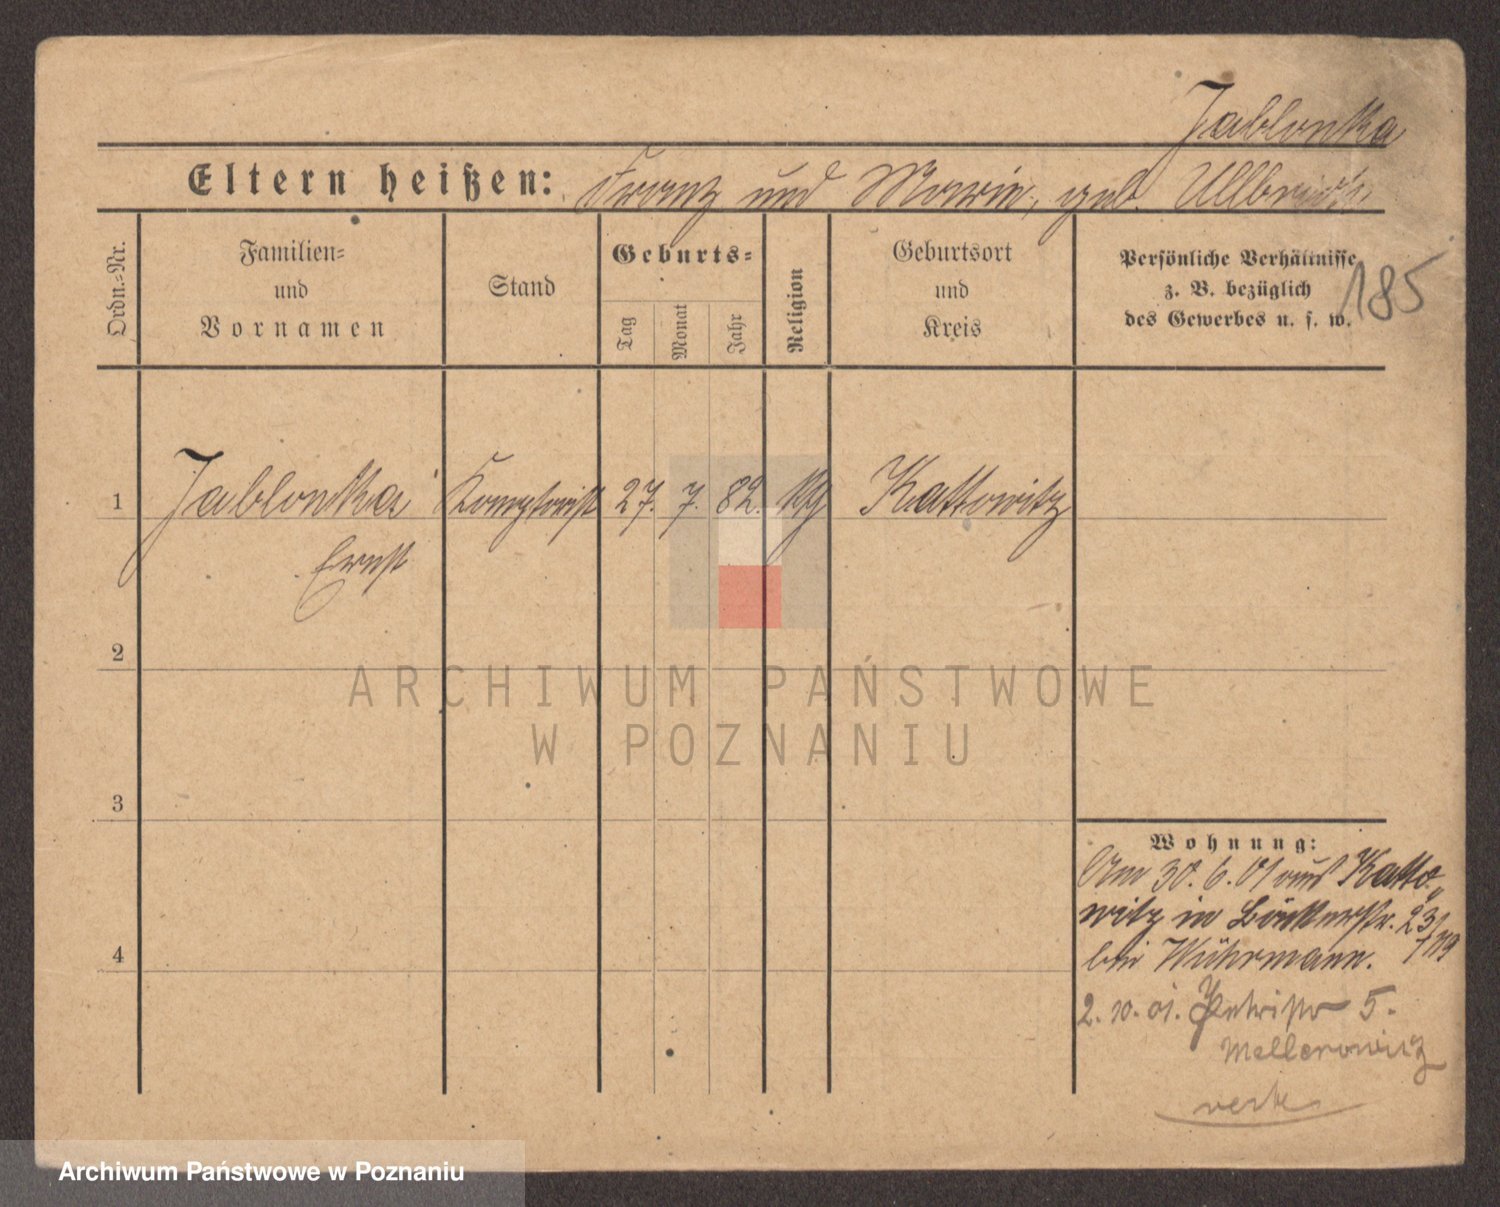 Jablonka
Eltern heißen: Franz und Marie, geb. Ullbrich
Ordn.-Nr.
Familien-
und
Vornamen
Stand
Geburts-
Tag
Monat
Jahr
Religion
Geburtsort
und
Kreis
Persönliche Verhältnisse
z. B. bezüglich
des Gewerbes u. s. w.
185
1 Jablonka Komptorist 27. 7. 82. Kattowitz
Ernst
2
3
4
Wohnung:
Am 30. 6. 01 aus Katto-
witz in Bäckerstr. 23
bei Wührmann. 1/7 19
2. 10. 01. Petristr 5.
Mellerowicz
ARCHIWUM PAŃSTWOWE
W POZNANIU
Archiwum Państwowe w Poznaniu